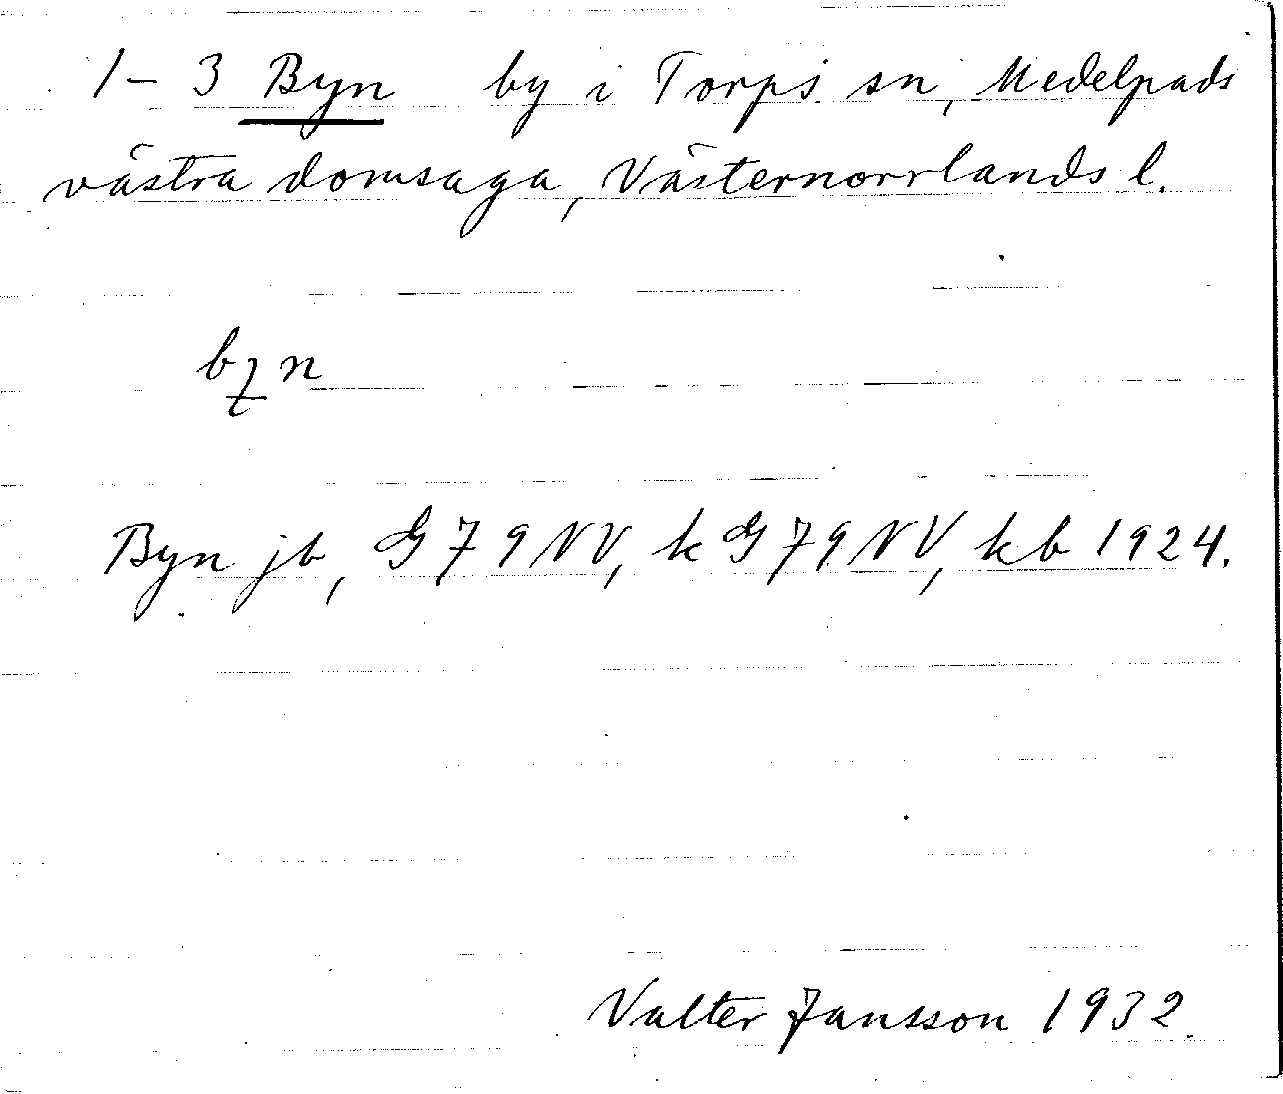 1-3 Byn by i Torps sn, Medelpads
västra domsaga, Västernorrlands l.
Byn jb, G79NV, k G79NV, kb 1924.
Valter Jansson 1932.